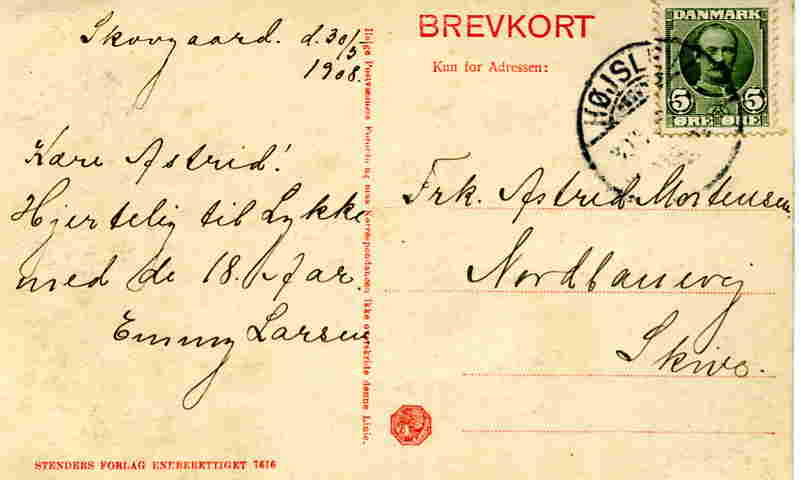 Skovgaard. d. 30/5
1908.
Kære Astrid!
Hjertelig til Lykke
med de 18. Aar.
Emmy Larsen
Ifølge Postvæsenets Forbud maa Korrespondancen ikke overskride denne Linie.
STENDERS FORLAG ENEBERETTIGET 7616
BREVKORT
Kun for Adressen:
DANMARK
5 5
ØRE ØRE
HØJSL
Frk. Astrid Mortensen
Nordbanevej
Skive.